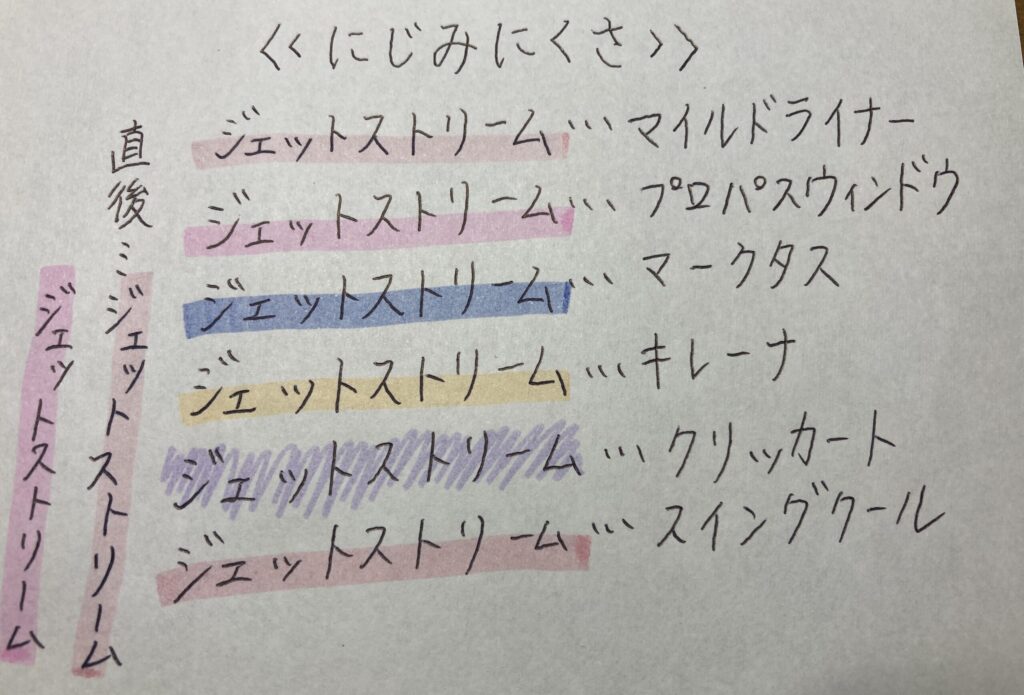 <<にじみにくさ>>
ジェットストリーム…マイルドライナー
ジェットストリーム…プロパスウィンドウ
ジェットストリーム…マークタス
ジェットストリーム…キレーナ
ジェットストリーム…クリッカート
ジェットストリーム…スイングクール
直後…ジェットストリーム
ジェットストリーム